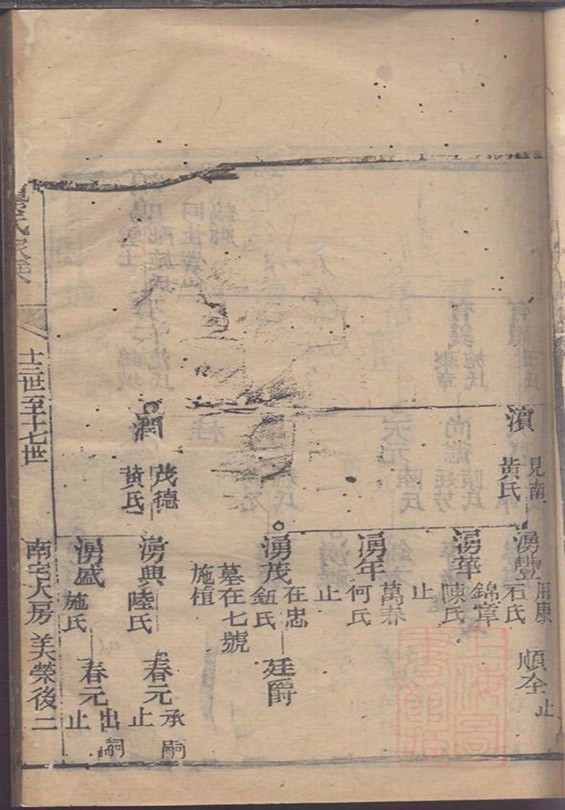 濱
見南
黃氏
湧豐
用康
石氏
順全
止
湧華
錦章
陳氏
止
湧年
萬春
何氏
止
湧茂
在忠
鈕氏
廷爵
墓在七號
施植
潤
茂德
黃氏
湧興
陸氏
春元
承嗣
止
湧盛
施氏
春元
出嗣
止
氏家乘
十三世至十七世
南宅大房 美榮後二